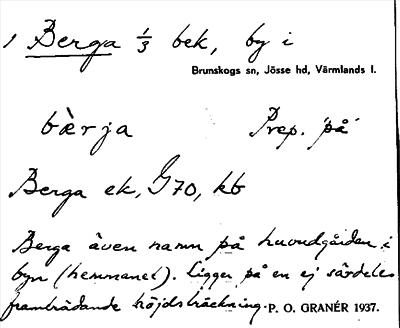 1 Berga 1/3 bek, by i
Brunskogs sn, Jösse hd, Värmlands l.
bæ̀rja Prep. "på"
Berga ek, G70, kb
Berga även namn på huvudgården i
byn (hemmanet). Ligger på en ej särdeles
framträdande höjdsträckning. P. O. GRANÉR 1937.